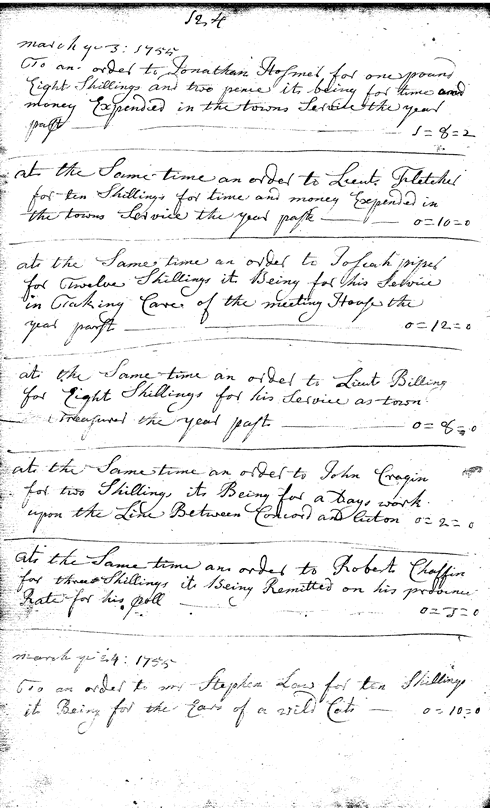 124
march ye 3: 1755
To an order to Jonathan Hosmer for one pound
Eight Shillings and two pence it being for time and
money Expended in the towns Service the year
past 1=8=2
at the Same time an order to Lieut Fletcher
for ten Shillings for time and money Expended in
the towns Service the year past 0=10=0
at the Same time an order to Josiah piper
for Twelve Shillings it Being for his Service
in Taking Care of the meeting House the
year past 0=12=0
at the Same time an order to Lieut Billing
for Eight Shillings for his Service as town
Treasurer the year past 0=8=0
at the Same time an order to John Cragin
for two Shillings it Being for a Days work
upon the Line Between Concord and Acton 0=2=0
at the Same time an order to Robert Chaffin
for three Shillings it Being Remitted on his province
Rate for his poll
0=3=0
march ye 24: 1755
To an order to mr Stephen Law for ten Shillings
it Being for the Ears of a wild Cat 0=10=0